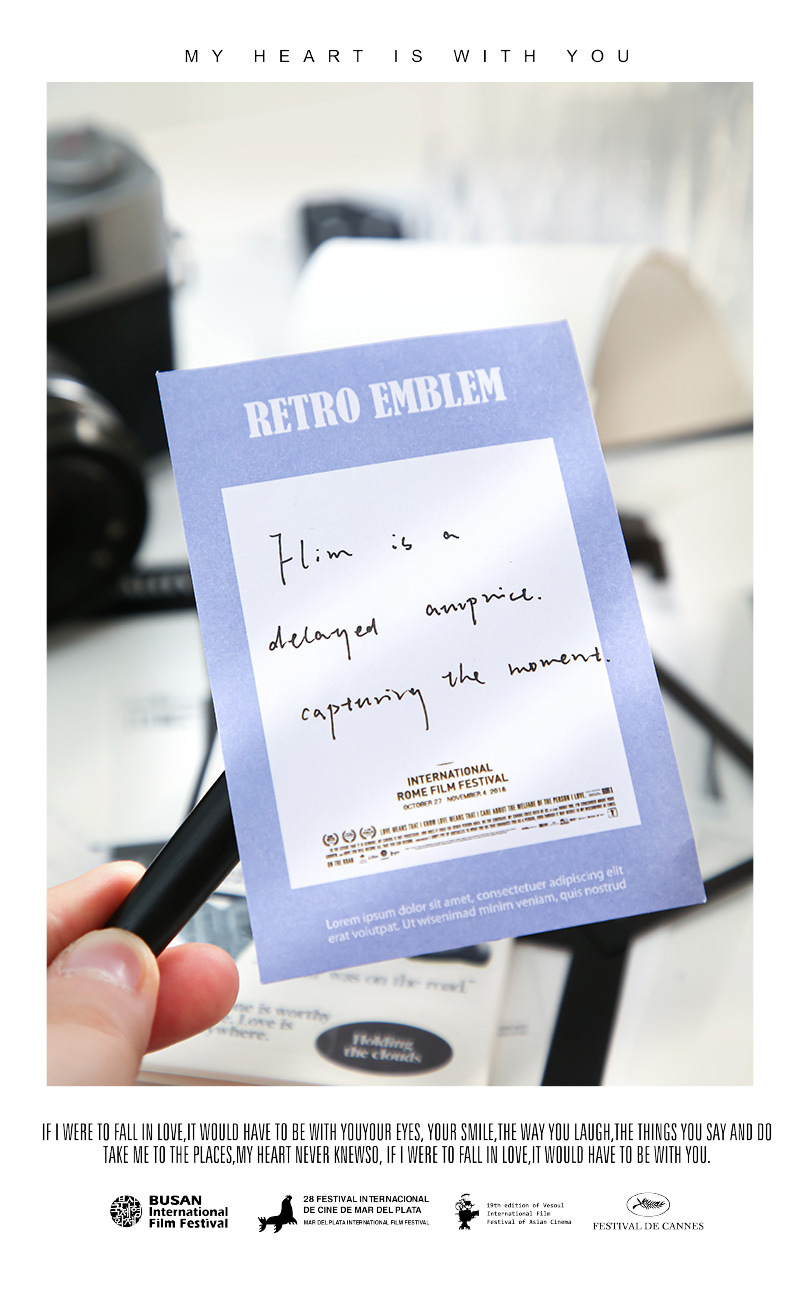 MY HEART IS WITH YOU
RETRO EMBLEM
Flim is a
delayed
capturing the moment.
INTERNATIONAL
ROME FILM FESTIVAL
OCTOBER 27 - NOVEMBER 4, 2018
LOVE MEANS THAT I KNOW LOVE MEANS THAT I CARE ABOUT THE WELFARE OF THE PERSON I LOVE.
ON THE ROAD
Lorem ipsum dolor sit amet, consectetuer adipiscing elit
erat volutpat. Ut wisenimad minim veniam, quis nostrud
was on the road."
is worthy
Love is
Holding
the clouds
IF I WERE TO FALL IN LOVE,IT WOULD HAVE TO BE WITH YOUYOUR EYES, YOUR SMILE,THE WAY YOU LAUGH,THE THINGS YOU SAY AND DO
TAKE ME TO THE PLACES,MY HEART NEVER KNEWSO, IF I WERE TO FALL IN LOVE,IT WOULD HAVE TO BE WITH YOU.
BUSAN
International
Film Festival
28 FESTIVAL INTERNACIONAL
DE CINE DE MAR DEL PLATA
MAR DEL PLATA INTERNATIONAL FILM FESTIVAL
19th edition of Vesoul
International Film
Festival of Asian Cinema
FESTIVAL DE CANNES